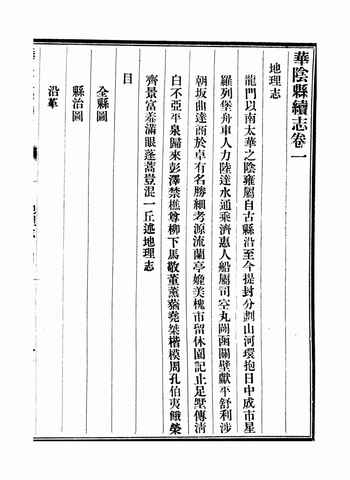 華陰縣續志卷一
地理志
龍門以南太華之陰雍屬自古縣沿至今提封分劃山河環抱日中成市星
羅列堡舟車人力陸達水通乘濟惠人船屬司空丸關函關壁獻平舒利涉
朝坂曲達酒於卓有名勝細考源流蘭亭媲美槐市留休園記止足墅傳清
白不亞平泉歸來彭澤禁樵尊柳下馬敬董薰猶堯桀楷模周孔伯夷餓榮
齊景富羞滿眼蓬蒿豈混一丘述地理志
目
全縣圖
縣治圖
沿革